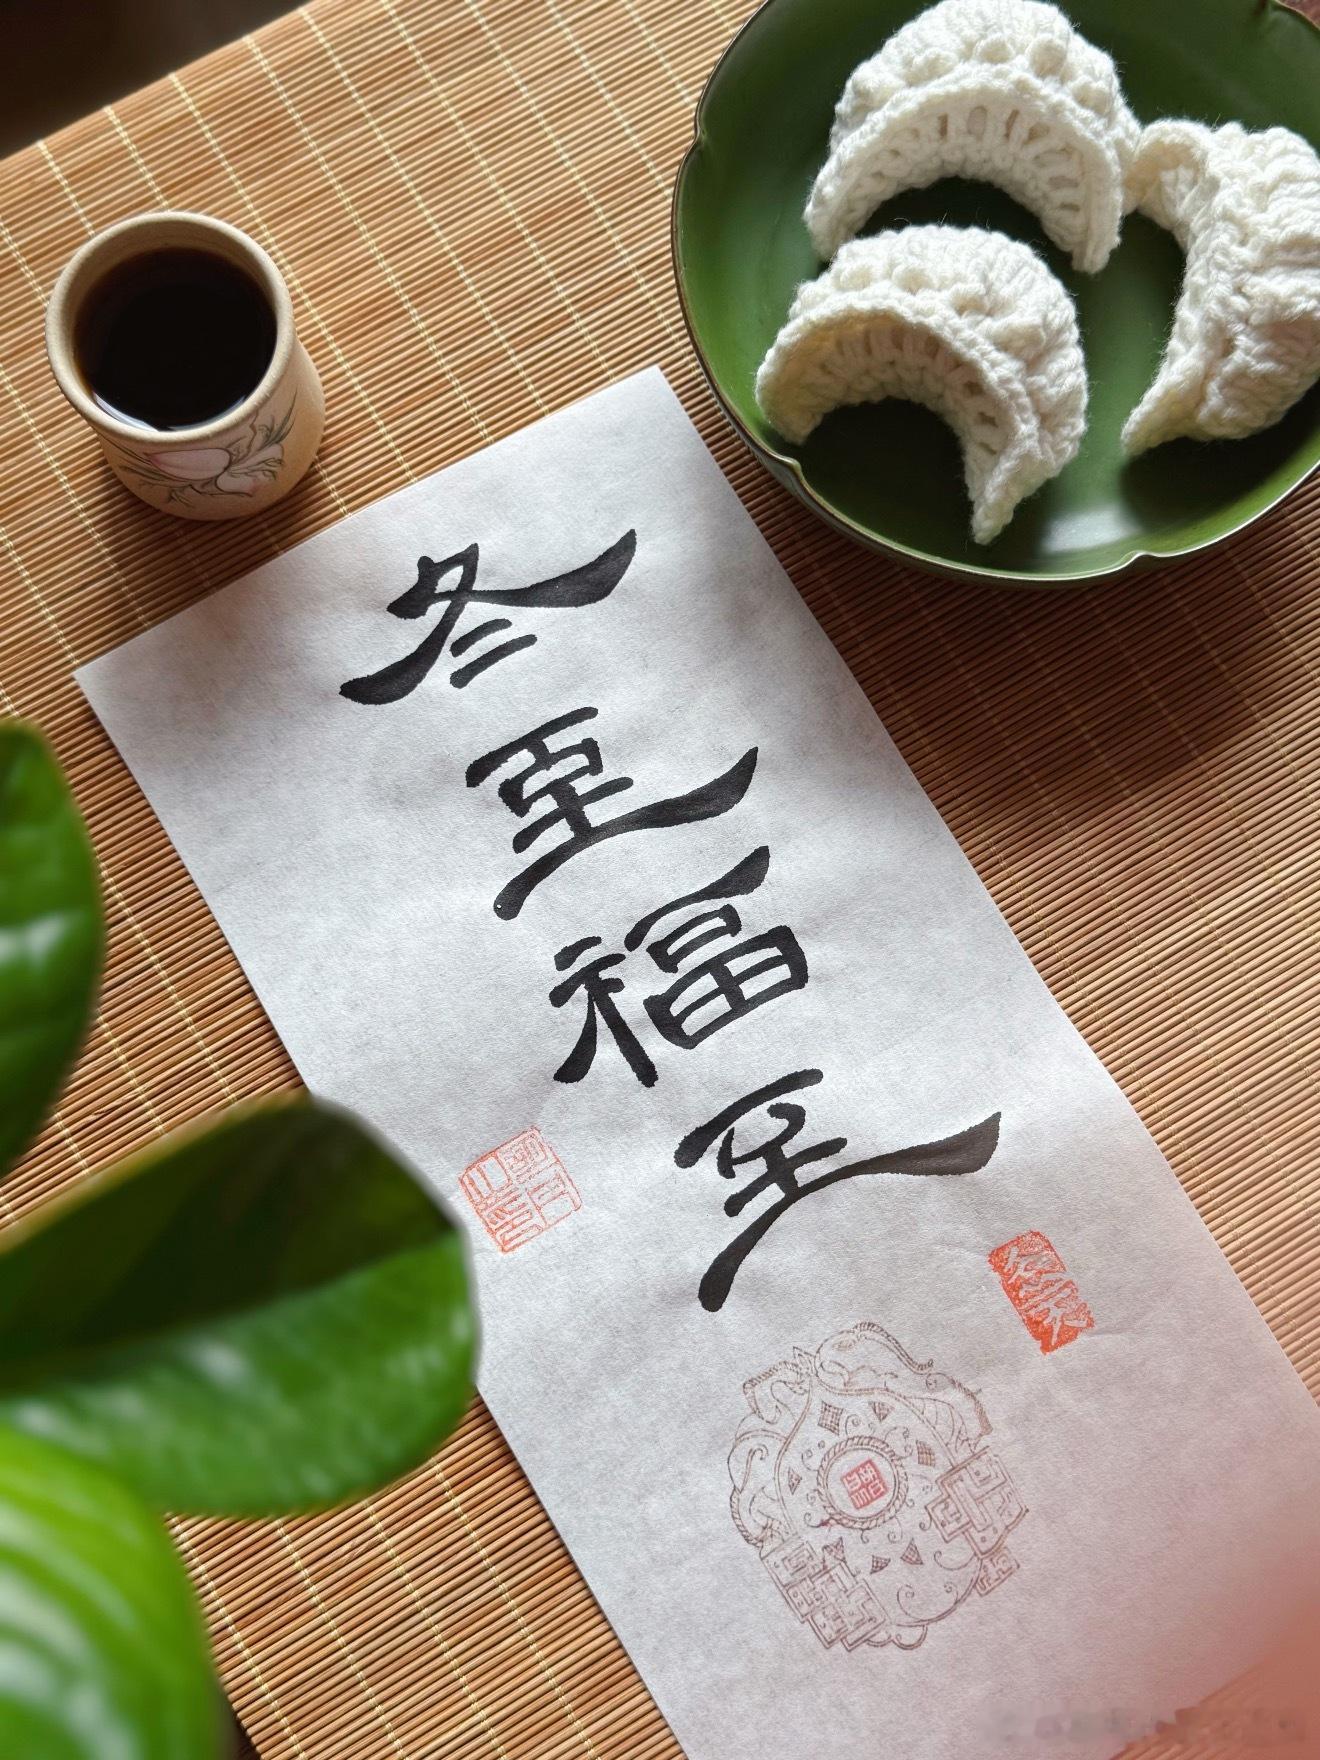 冬至福至